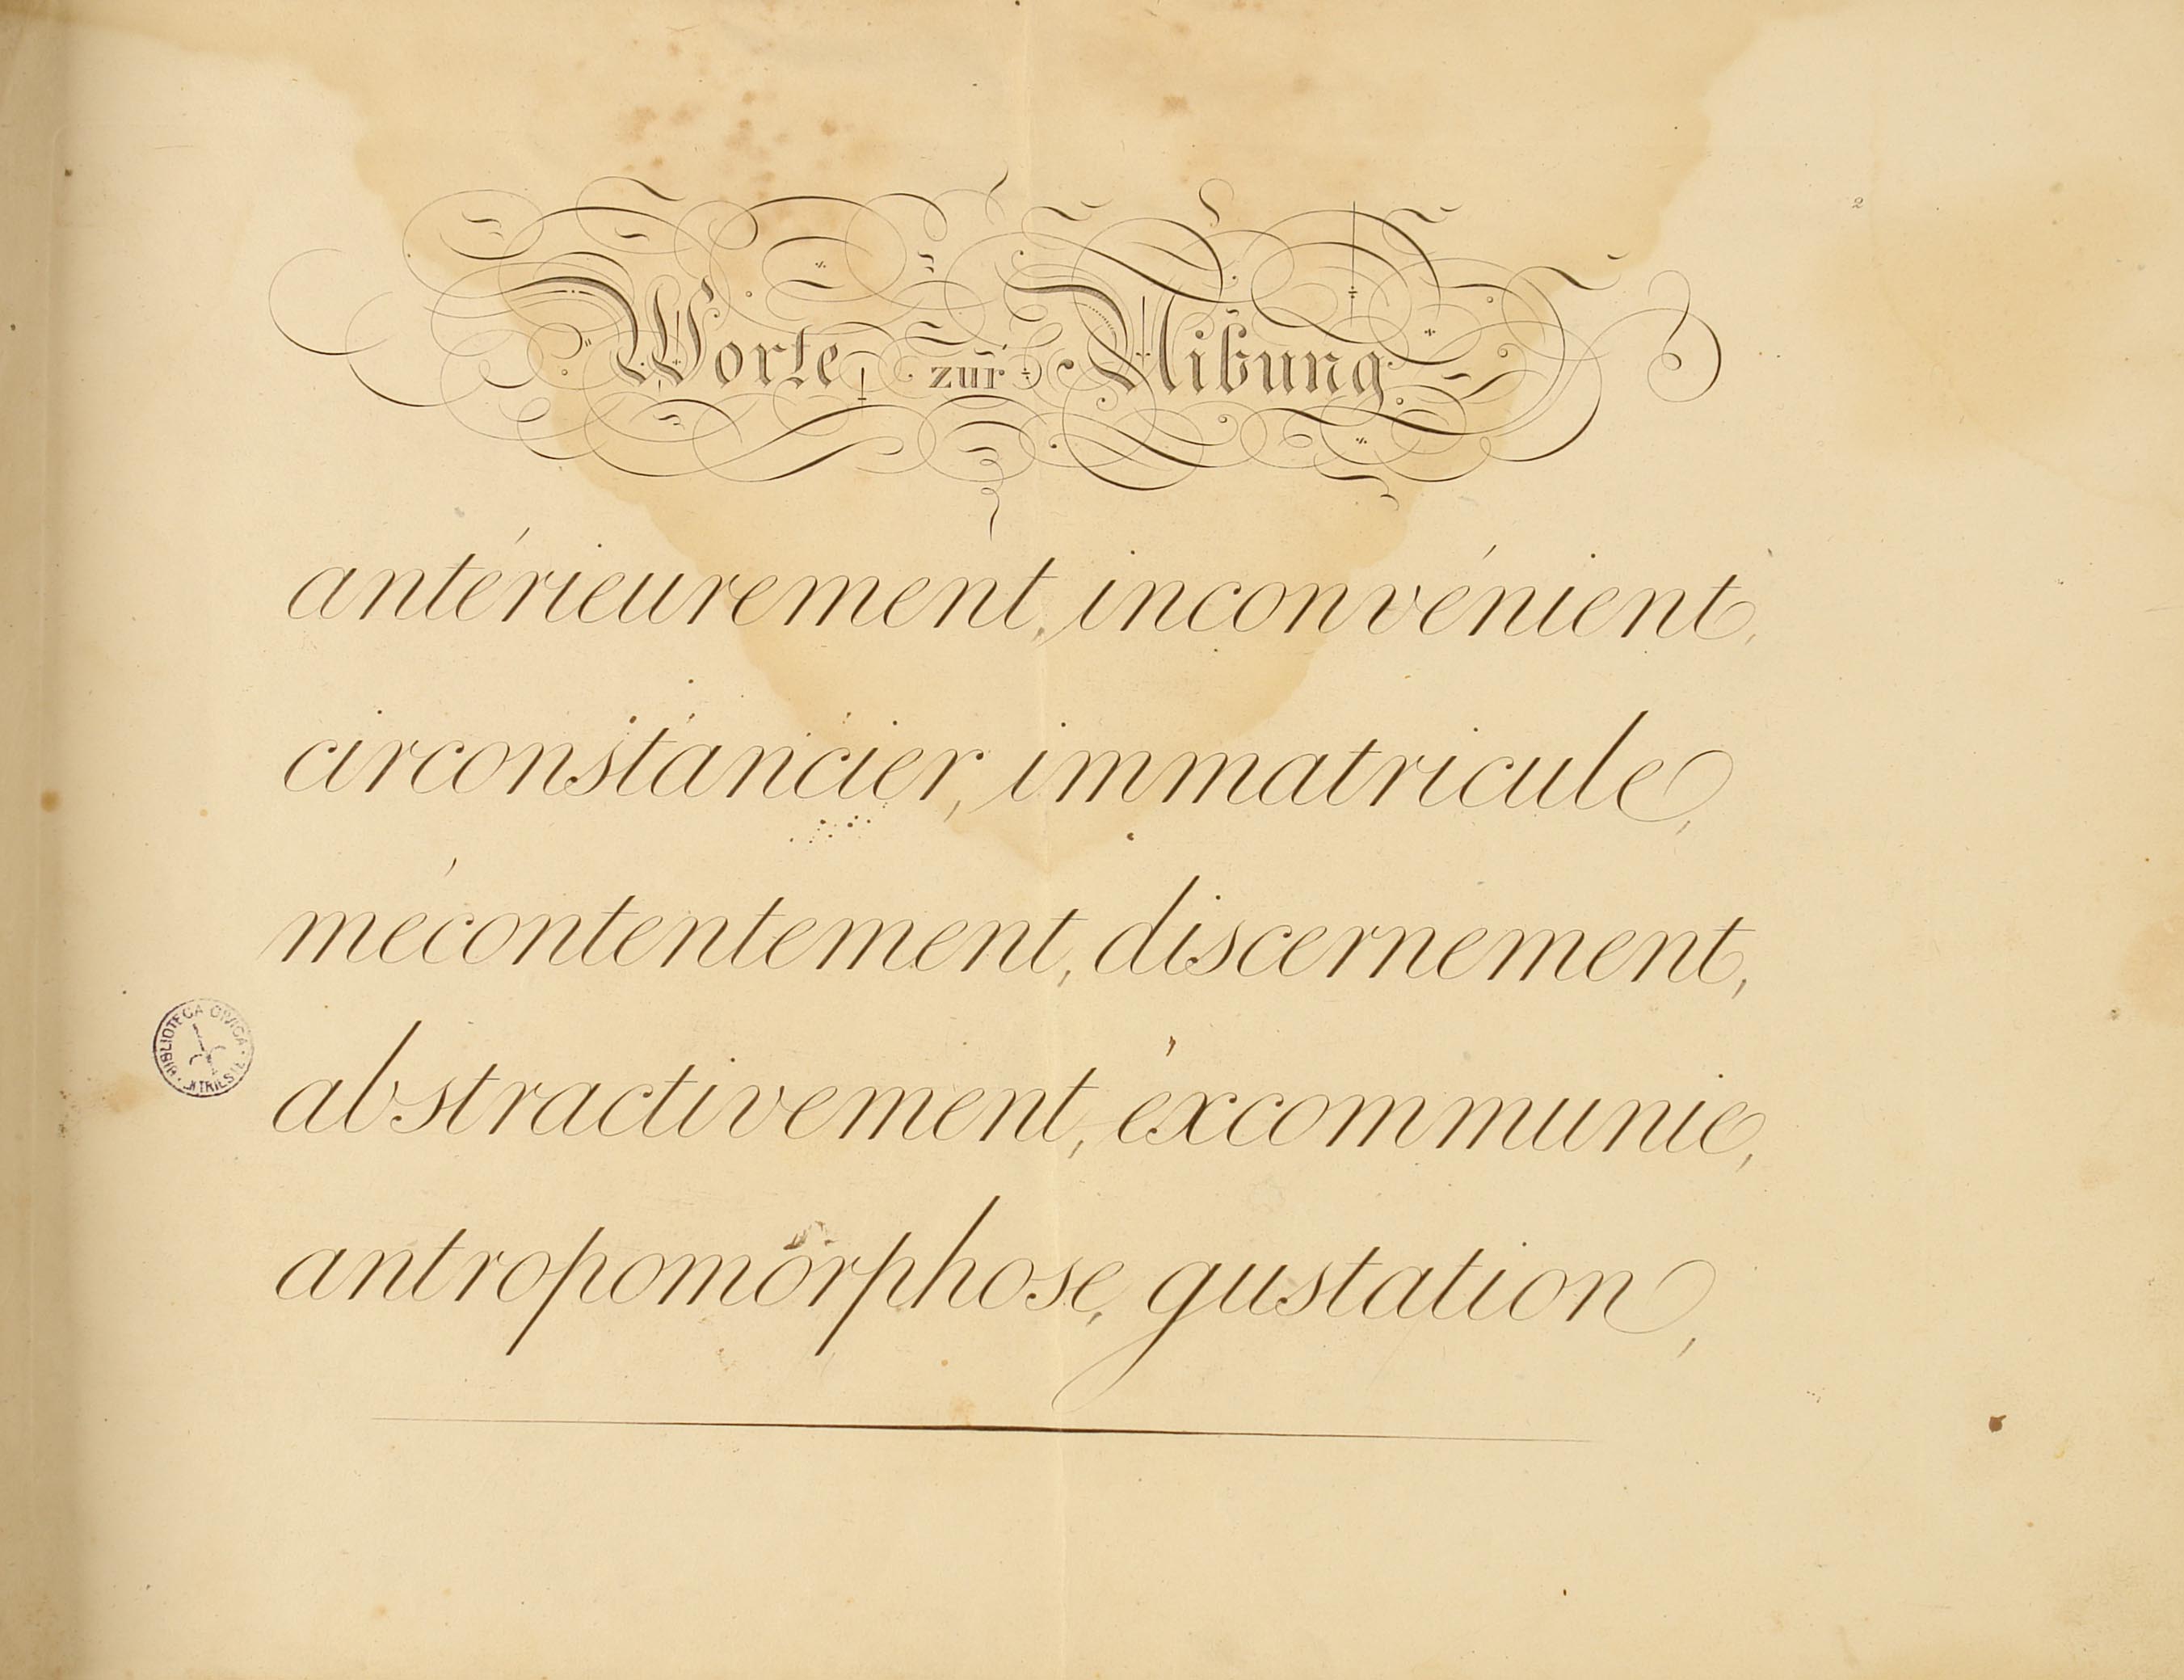 2
Worte zur Uibung
antérieurement, inconvénient,
circonstancier, immatricule,
mécontentement, discernement,
abstractivement, excommunie,
antropomorphose, gustation,
BIBLIOTECA CIVICA · TRIESTE